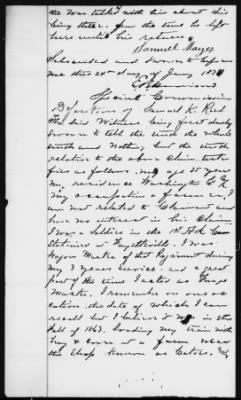 He was talked with him about this
being there. from the time he left
here until his return
Samuel Mayes
Subscribed and sworn to before
me this day of Jany 187
Special Commissioner
Deposition of Samuel K. Reed
The said Witness being first duly
sworn to tell the truth the whole
truth and nothing but the truth
relative to the above Claim testi
fies as follows. my age 35 year
My residence Washington Co
My occupation a farmer, I
am not related to Claimant and
have no interest in his Claim
I was a Soldier in the 1st Ark Cav
Stationed at Fayetteville. I was
Wagon Master of the Regiment during
my 3 years service and a great
part of the time I acted as Forage
Master. I remember on one oc
cation, the date of which I can
recall but I believe it was in the
fall of 1863. loading my train with
hay & corn at a farm near
the Shop known as Cators.